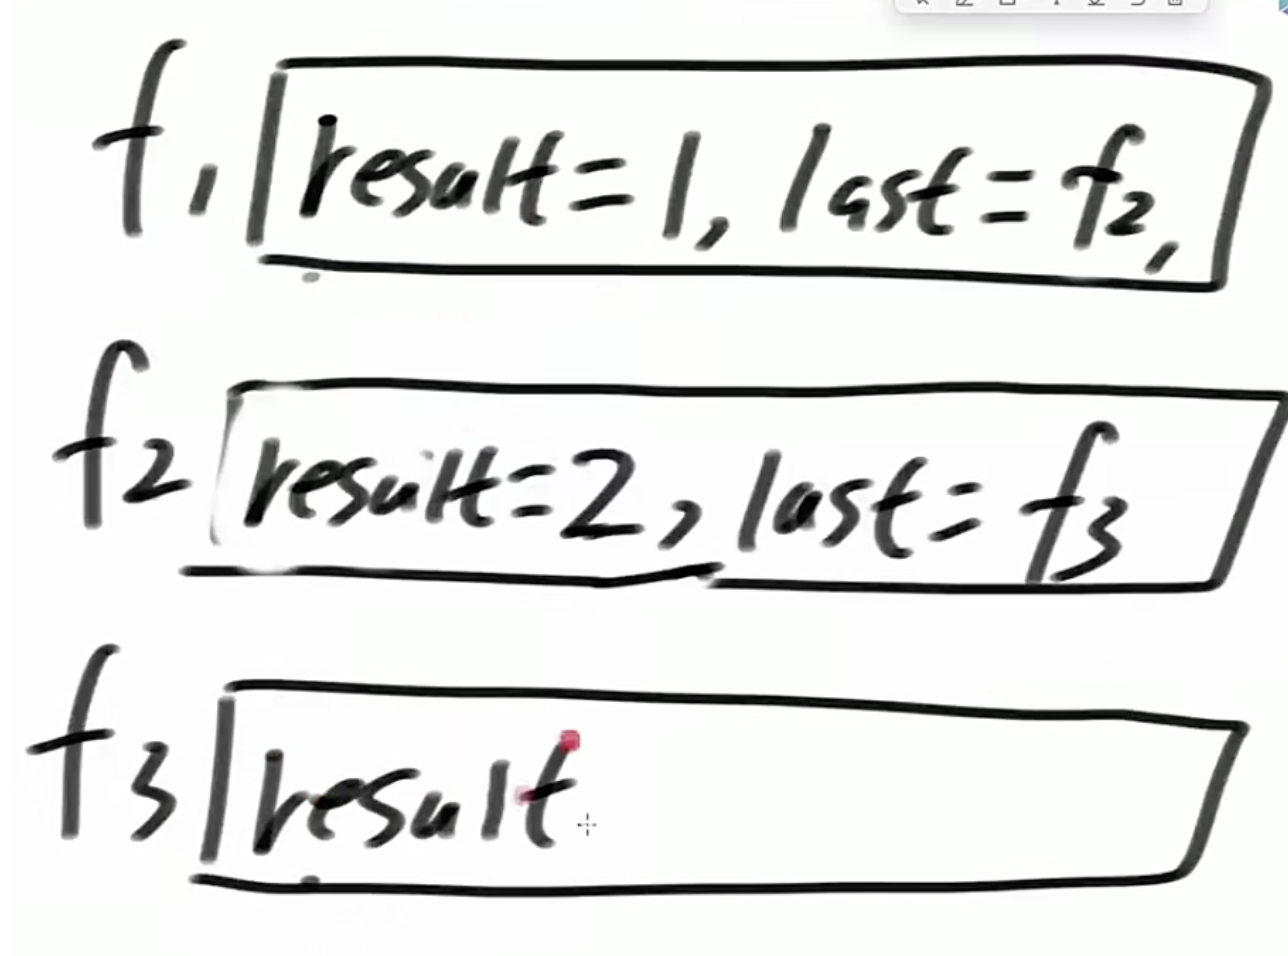 f1 result=1, last=f2,
f2 result=2, last=f3
f3 result